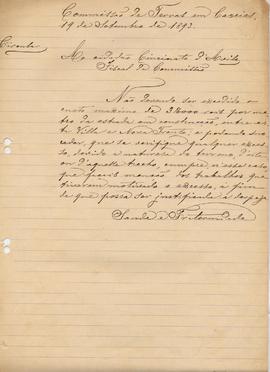 Commissão de Terras em Caxias,
19 de Setembro de 1893.
Circular
Ao cidadão Cincinato d'Avila
Fiscal da Commissão
Não devendo ser excedido o
custo maximo de 3$000 reis por me-
tro da estrada em construcção, entre es-
ta Villa e Nova Trento, e podendo suc-
ceder, que se verifique qualquer exces-
so, devido a natureza do terreno
d'aquelle trecho, cumpre n'esse caso
que façais menção dos trabalhos que
tiverem motivado o excesso, a fim
de que possa ser justificada a despeza
Saude e Fraternidade